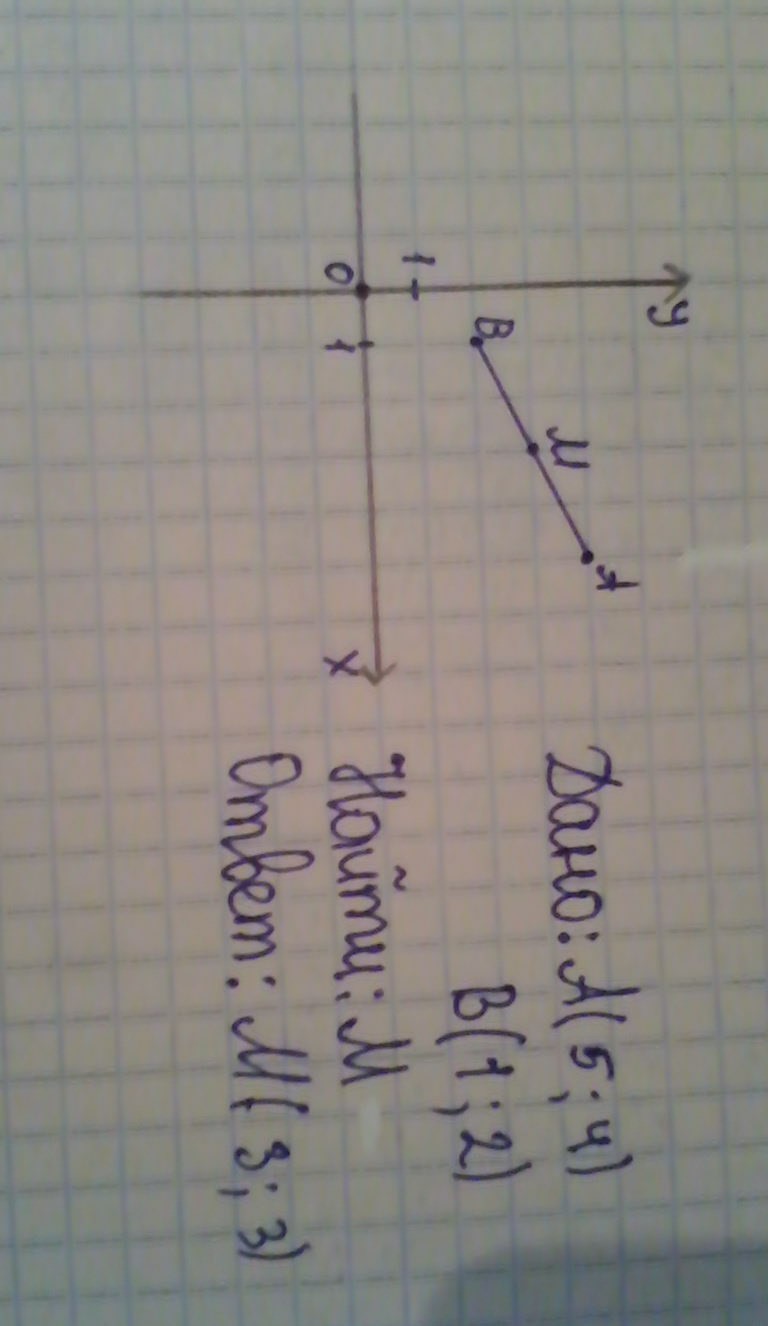 y
A
M
B
1
0
1
x
Дано: A(5;4)
B(1;2)
Найти: M
Ответ: M(3;3)